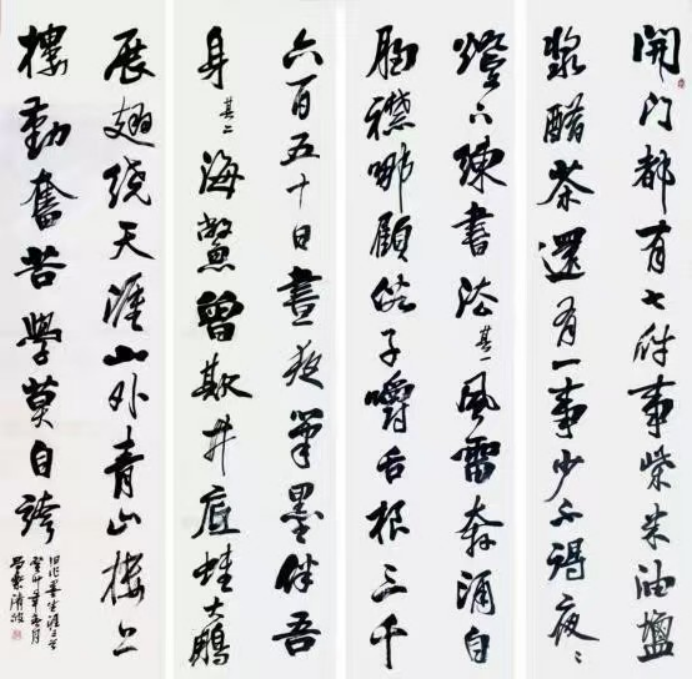 開门都有七件事柴米油鹽
漿醋茶還有一事少不得夜〻
燈下練書法其一風雷奔涌自
胸襟哪顧俗子嚼舌根三千
六百五十日晝夜筆墨伴吾
身其二海鱉曾欺井底蛙大鵬
展翅绕天涯山外青山楼上
樓勤奮苦學莫自誇
旧作墨生涯
癸卯年春月